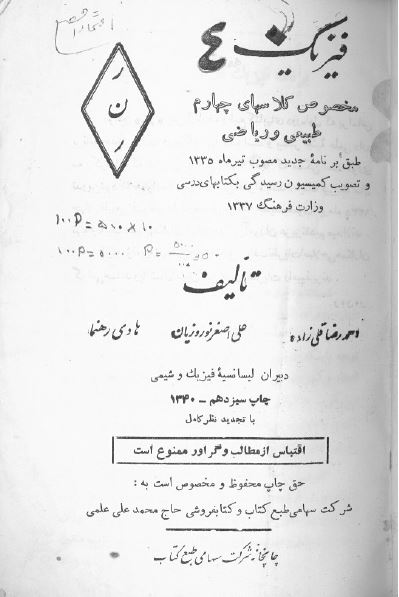 فیزیک ٤
ر
ن
ر
مخصوص کلاسهای چهارم
طبیعی و ریاضی
طبق برنامهٔ جدید مصوب تیرماه ۱۳۳۵
و تصویب کمیسیون رسیدگی بکتابهای درسی
وزارت فرهنگ ۱۳۳۷
۱۰۰P = ۵۱۰ × ۱۰
۱۰۰P = ۵۰۰۰ P =
تألیف
احمد رضا قلی زاده علی اصغر نوروزیان هادی رهنما
دبیران لیسانسیهٔ فیزیک و شیمی
چاپ سیزدهم - ۱۳۴۰
با تجدید نظر کامل
اقتباس از مطالب و گراور ممنوع است
حق چاپ محفوظ و مخصوص است به :
شرکت سهامی طبع کتاب و کتابفروشی حاج محمد علی علمی
چاپخانه شرکت سهامی طبع کتاب